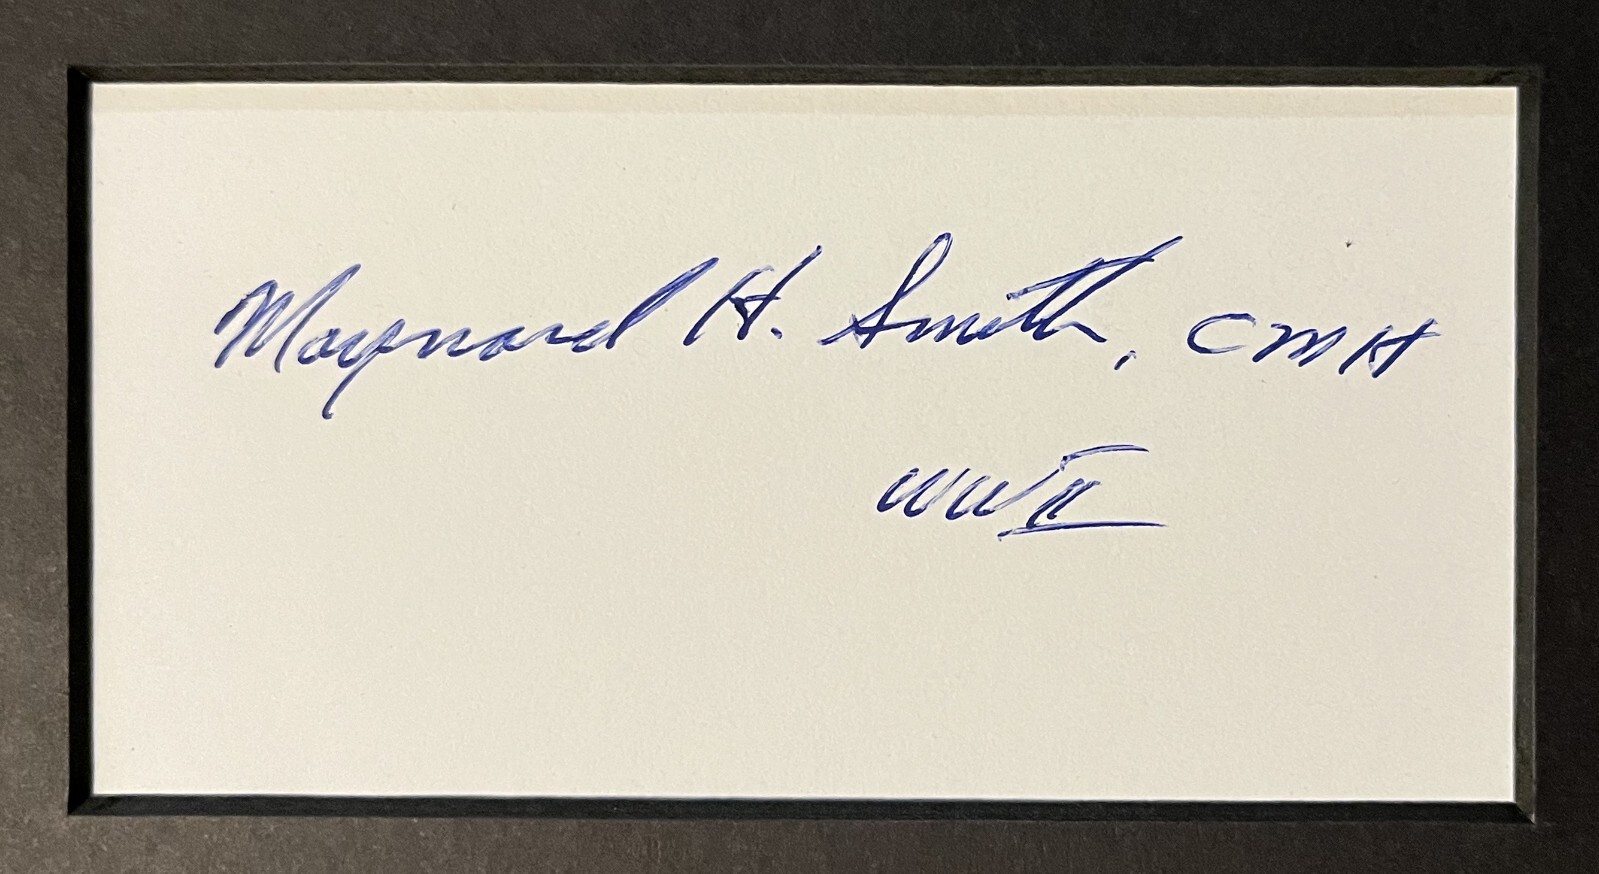 Maynard H. Smith, CMH
WWII